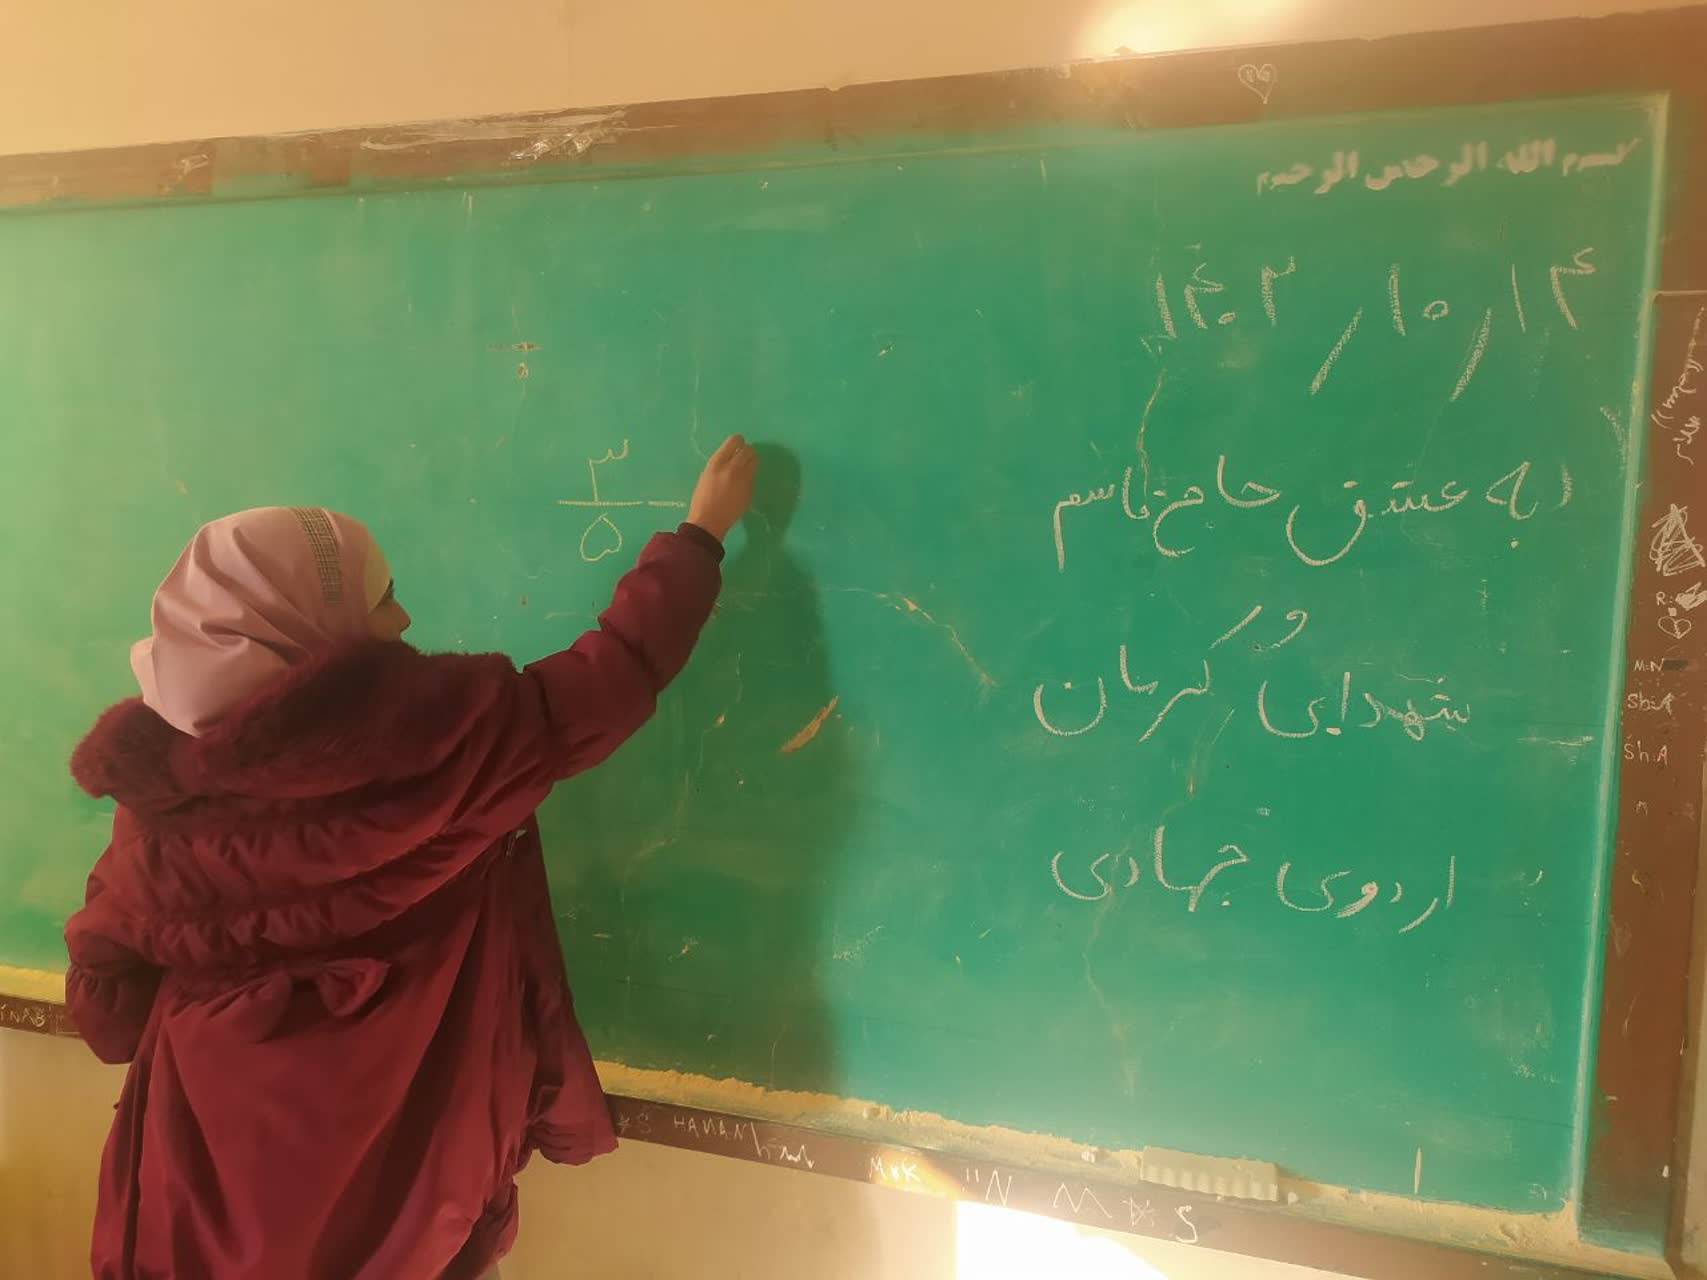 بسم الله الرحمن الرحیم
۱۴۰۲/۱۰/۱۴
به عشق حاج قاسم
و
شهدای کرمان
اردوی جهادی
۳
۵
R:
M:N
Sh:A
Sh:A
INAB
S HANAN
M♥K
"N
M☆S